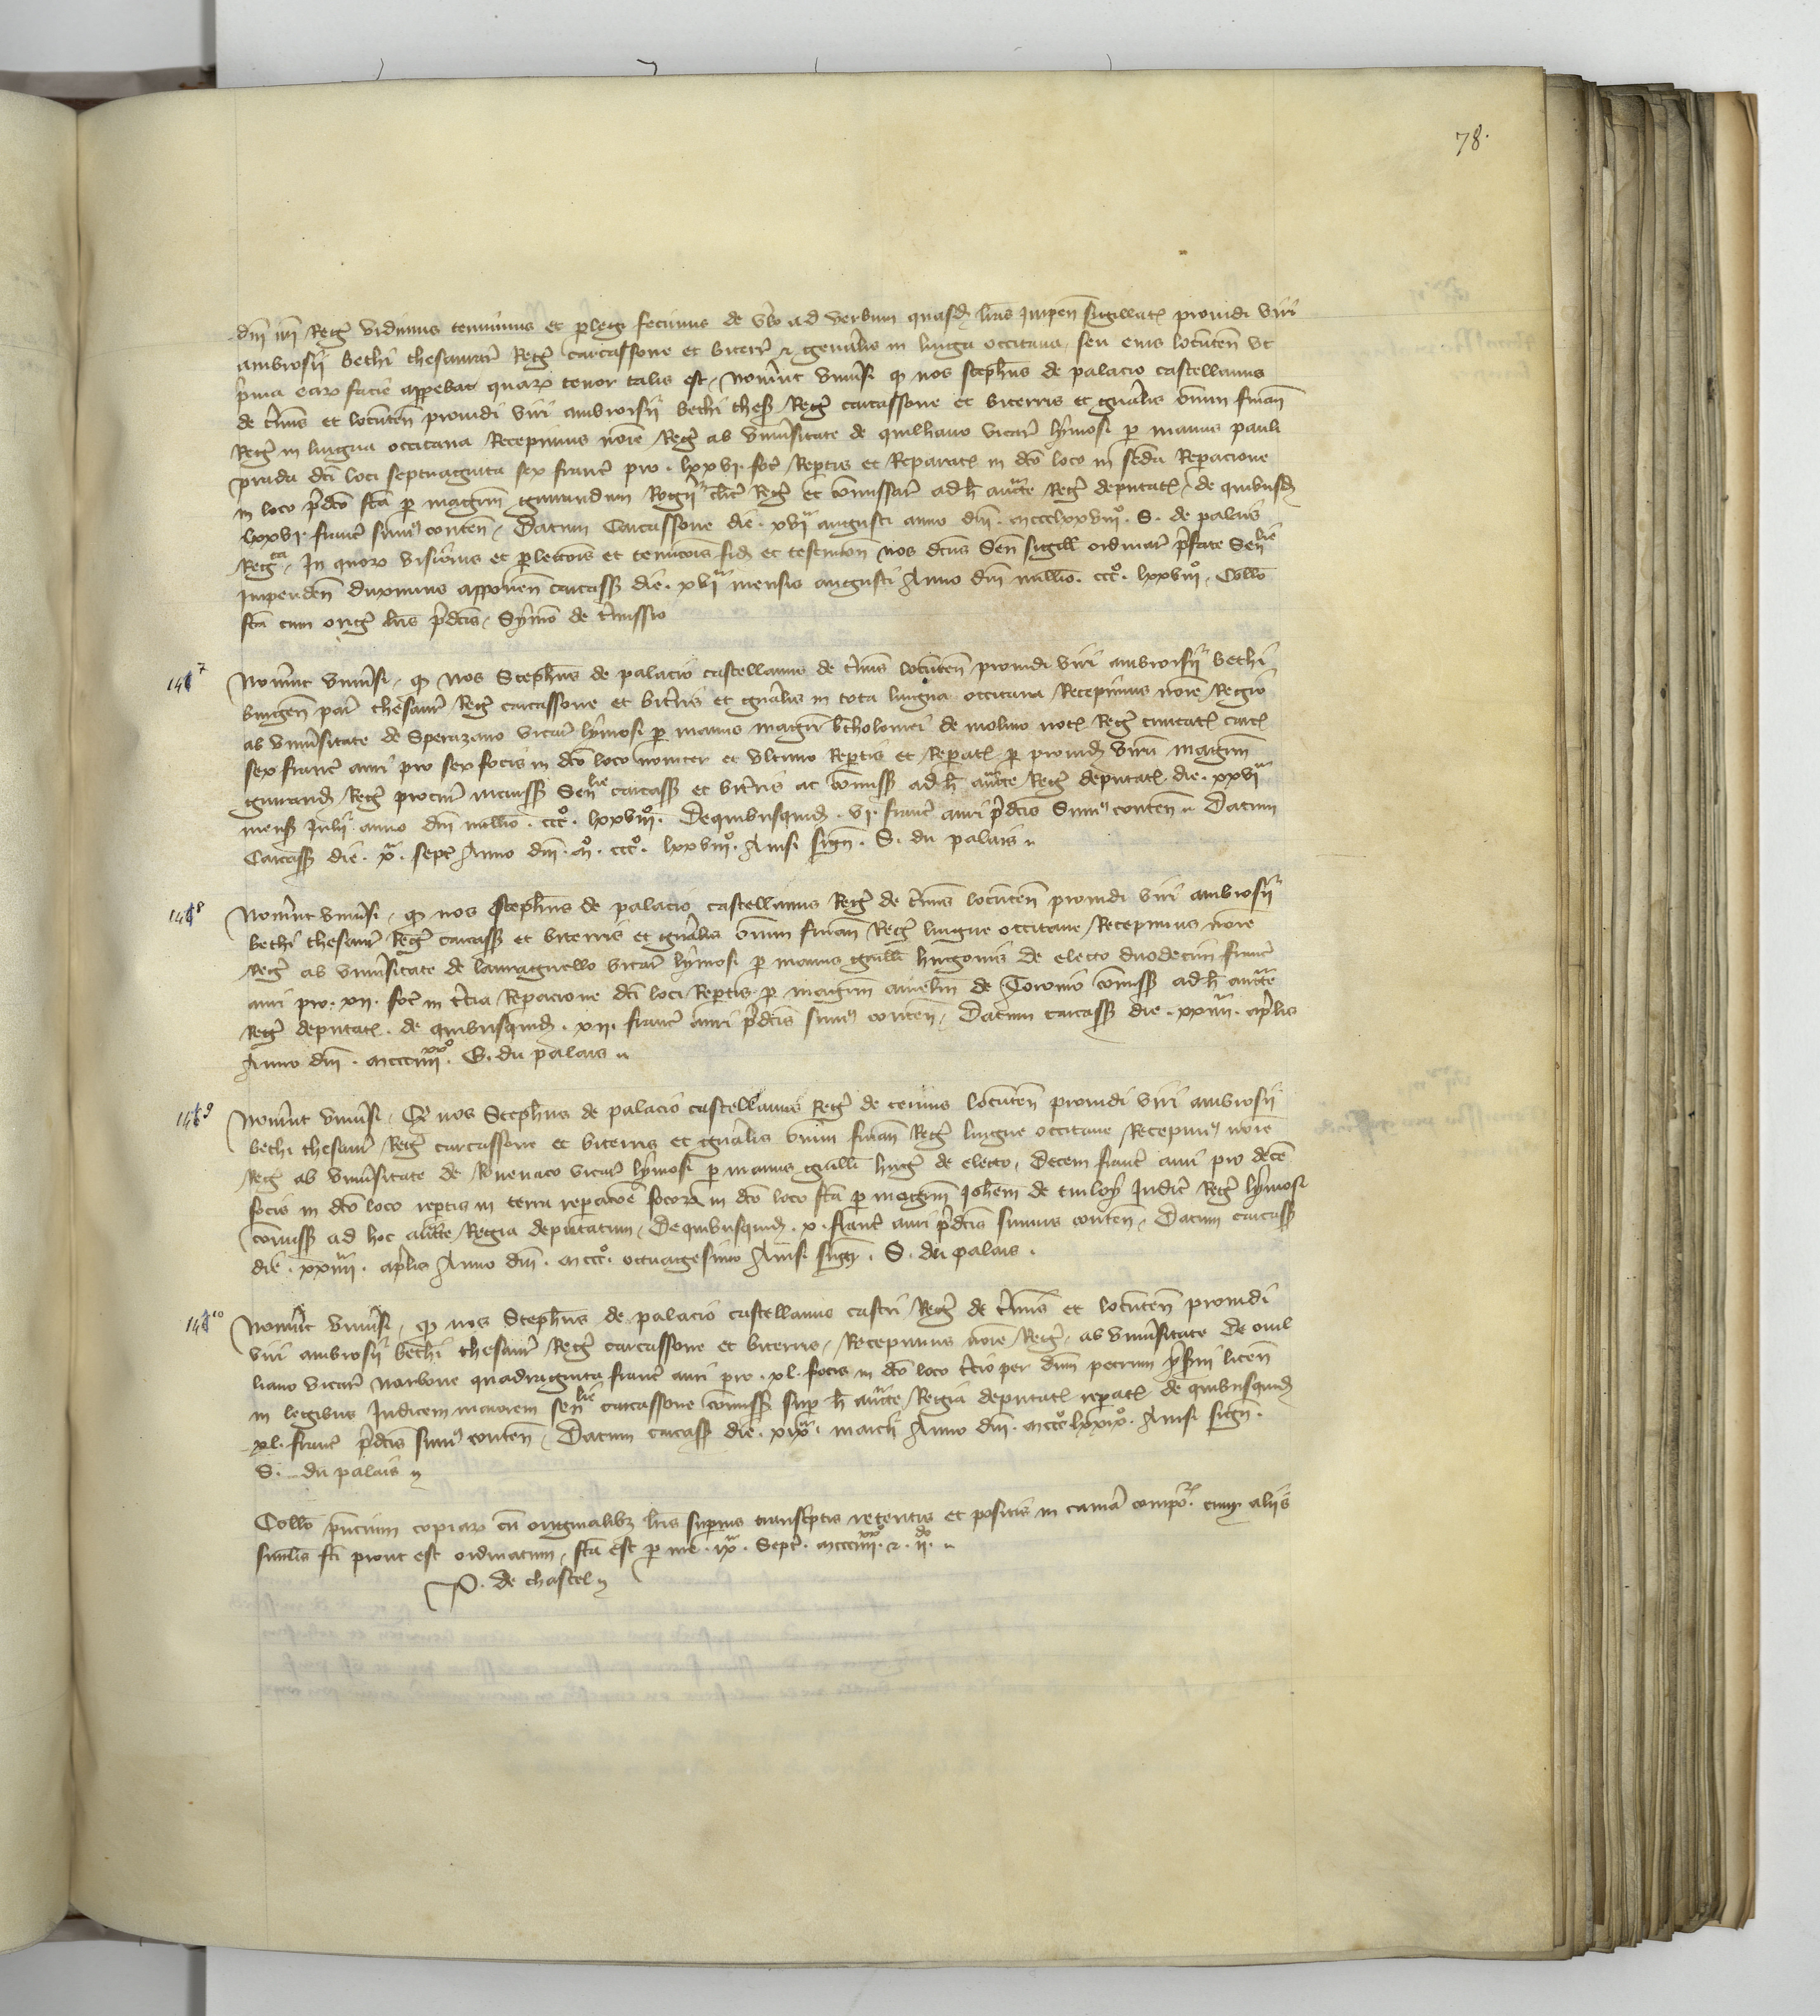 78.
dni nri Reg vidimus tenuimus et perlegi fecimus de vbo ad verbum quasd lras Impen sigillat prouidi viri
ambrosii bethi thesaurar Reg carcassone et biterr et generalis in linga occitana, seu eius locumten vt
prima earum facie apperebat quarum tenor talis est, Nouerint vniursi q nos stephus de palacio castellanus
de trmis et locumten prouidi viri ambroisii bethi thes Reg carcassone et biterris et gnalis omnium finan
Reg in lingua occitana Recepimus noie Reg ab vniusitate de quilhano vicar lymosi p manus pauli
prada dci loci septuaginta sex franc pro . lxxvi . foc Reptis et Reparat in dco loco in secda Reparacione
in loco predco fca p magrum guirandum Rogii clic Reg et comissar ad h aucte Reg deputat, de quibusd
lxxvi . franc sumus conten, Datum Carcassone die . xvi augusti anno dni . mccclxxviii . S. de palais
Reg, In quorum visionis et perleccois et tenucois fid et testimon nos dcus Sen sigill ordinar prfate Senlie
Impenden duximus apponen carcass die . xvi mensis augusti Anno dni millio . ccc . lxxviii, Collo
fca cum orig lris prdcis, Symo de trmissio
1467 Nouerint vniursi, q nos Stephus de palacio castellanus de trmis locumten prouidi viri ambroisii bethi
burgen par thesaurar Reg carcassone et bitris et gnalis in tota lingua occitana Recepimus noie Regio
ab vniusitate de Sperazano vicar lymosi p manus magri btholomei de molino not Reg ciuitat carc
sex franc auri pro sex focis in dco loco nouiter et vltimo Reptis et Reparat p prouid viru magrum
guirand Reg procur in causs Senlie carcass et bitris ac comiss ad h aucte Reg deputat die . xxvi
mens Julii anno dni millio . ccc . lxxviii . De quibusquid . vi . franc auri prdcis Sumus conten Datum
Carcass die . x . sept Anno dni . m . ccc . lxxviii . Ainsi sign . S. du palais
148 Nouerint vniursi, q nos stephus de palacio castellanus Reg de trmis locumten prouidi viri ambrosii
bethi thesaur Reg carcass et biterris et gnalis omnium finan Reg lingue occitane Recepimus noie
Reg ab vniusitate de lauraguello vicar lymosi p manus guilli hugonis de electo duodecim franc
auri pro . xii . foc in tcia Repacione dci loci Reptis p magrum amelm de Toronio comiss ad h aucte
Reg deputat . de quibusquid . xii . franc auri prdcis sumus conten, Datum carcass die . xxiiii . aprlis
Anno dni . mccciiii . S. du palais
149 Nouerint vniursi, Q nos Stephus de palacio castellanus Reg de termis locumten prouidi viri ambrosii
bethi thesaur Reg carcassone et biterris et gnalis omnium finan Reg lingue occitane Recepimus noie
Reg ab vniusitate de Ruenaco vicar lymosi p manus guilli hug de electo, Decem franc auri pro dece
focis in dco loco reptis in terra repacoe focorum in dco loco fca p magrum Johem de tuloy Judic Reg lymosi
comiss ad hoc auctte Regia deputatum, De quibusquid . x . franc auri prdcis sumus conten, Datum carcass
die . xxiiii . aprlis Anno dni . mccc . octuagesimo Ainsi sign . S. du palais .
1410 Nouerint vniursi, q nos Stephus de palacio castellanus castri Reg de trmis et locumten prouidi
viri ambrosii bethi thesaur Reg carcassone et biterris, Recepimus noie Reg, ab vniusitate de ouil
liano vicar Narbone quadraginta franc auri pro . xl . focis in dco loco tcio per dnm petrum licen
in legibus Judicem maiorem senlie carcassone comiss sup h aucte Regia deputat repat de quibusquid
xl . franc prdcis sumus conten, Datum carcass die . xix . marcii Anno dni . mccclxxix . Ainsi sign .
S. du palais
Collo pncium copiarum cu originalibz lris superius transcptis retentis et positis in camera compor . cum aliis
similis fci prout est ordinatum, fca est p me . ix . Sept . mccciiii . et . ii .
P. de chastel